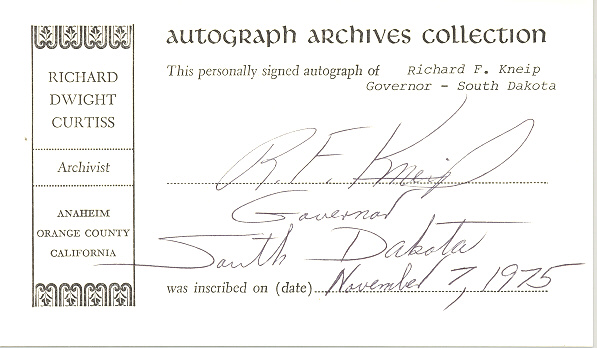 RICHARD
DWIGHT
CURTISS
Archivist
ANAHEIM
ORANGE COUNTY
CALIFORNIA
AUTOGRAPH ARCHIVES COLLECTION
This personally signed autograph of Richard F. Kneip
Governor - South Dakota
R. F. Kneip
Governor
South Dakota
was inscribed on (date) November 7, 1975